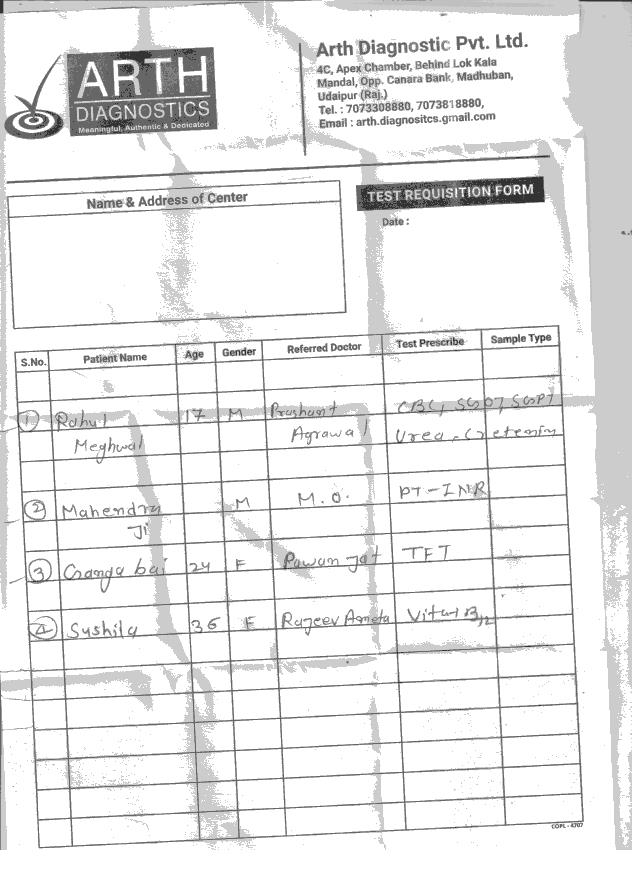 ARTH
DIAGNOSTICS
Meaningful, Authentic & Dedicated
Arth Diagnostic Pvt. Ltd.
4C, Apex Chamber, Behind Lok Kala
Mandal, Opp. Canara Bank, Madhuban,
Udaipur (Raj.)
Tel. : 7073308880, 7073818880,
Email : arth.diagnositcs.gmail.com
Name & Address of Center
TEST REQUISITION FORM
Date :
S.No. Patient Name Age Gender Referred Doctor Test Prescribe Sample Type
1 Rahul 17 M Prashant CBC, SGOT, SGPT
Meghwal Agrawal Urea
2 Mahendra M M.O. PT-INR
Ji
3 Ganga bai 24 F Pawan Jat TFT
4 Sushila 36 F Rajeev Ameta Vita B12
COPL - 4707